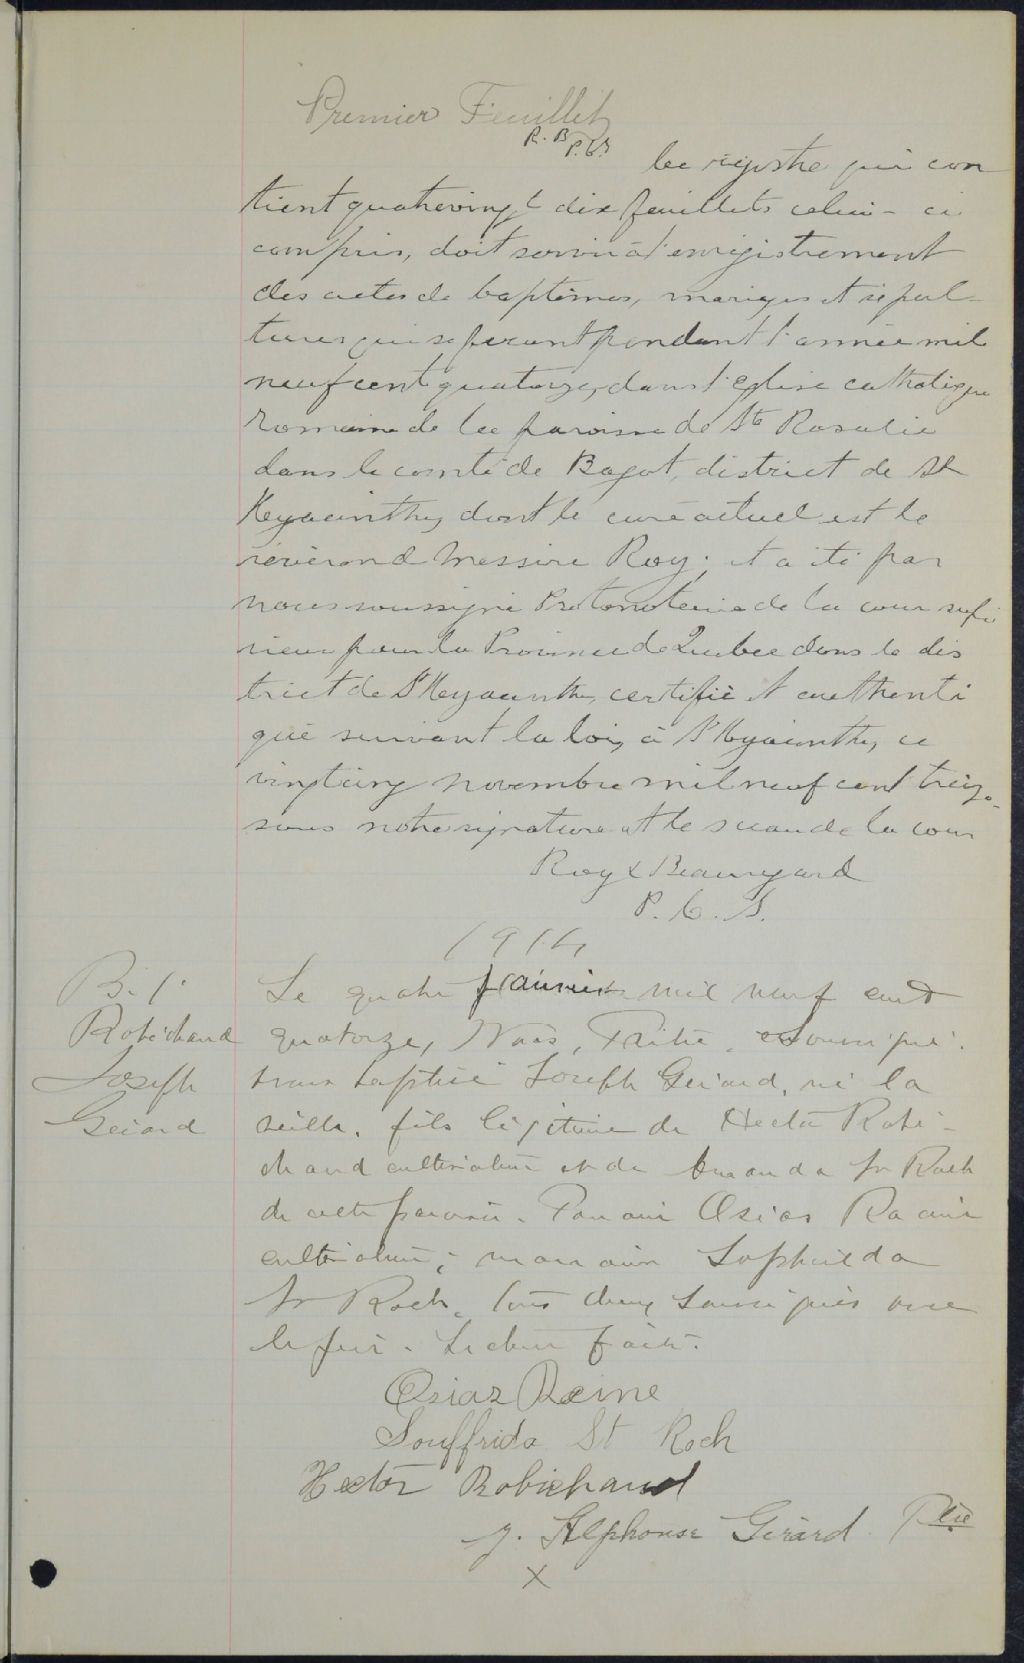 Premier Feuillet
R. B
P.C.S.
Le registre qui con
tient quatrevingt dix feuillets celui-ci
compris, doit servir à l'enregistrement
des actes de baptêmes, mariages et sépul-
tures qui se feront pendant l'année mil
neuf cent quatorze, dans l'Eglise catholique
Romaine de la paroisse de Ste Rosalie
dans le comté de Bagot, district de St
Hyacinthe, dont le curé actuel est le
révérend Messire Roy; et a été par
nous soussigné Protonotaire de la cour supé
rieur pour la Province de Québec dans le dis
trict de St Hyacinthe, certifié et authenti
qué suivant la loi, à St Hyacinthe, ce
vingtcinq novembre mil neuf cent treize
sous notre signature et le sceau de la cour
Roy & Beauregard
P. C. S.
1914
B. 1.
Robichaud
Joseph
Gérard
Le quatre janvier mil neuf cent
quatorze, Nous, Prêtre, soussigné
avons baptisé Joseph Gérard, né la
veille, fils légitime de Hector Robi-
chaud cultivateur et de Amanda St Roch
de cette paroisse. Parrain Osias Racine
cultivateur; marraine Sophrida
St Roch, tous deux soussignés avec
le père. Lecture faite.
Osias Racine
Souffrida St Roch
Hector Robichaud
J. Alphonse Gérard Ptre
X